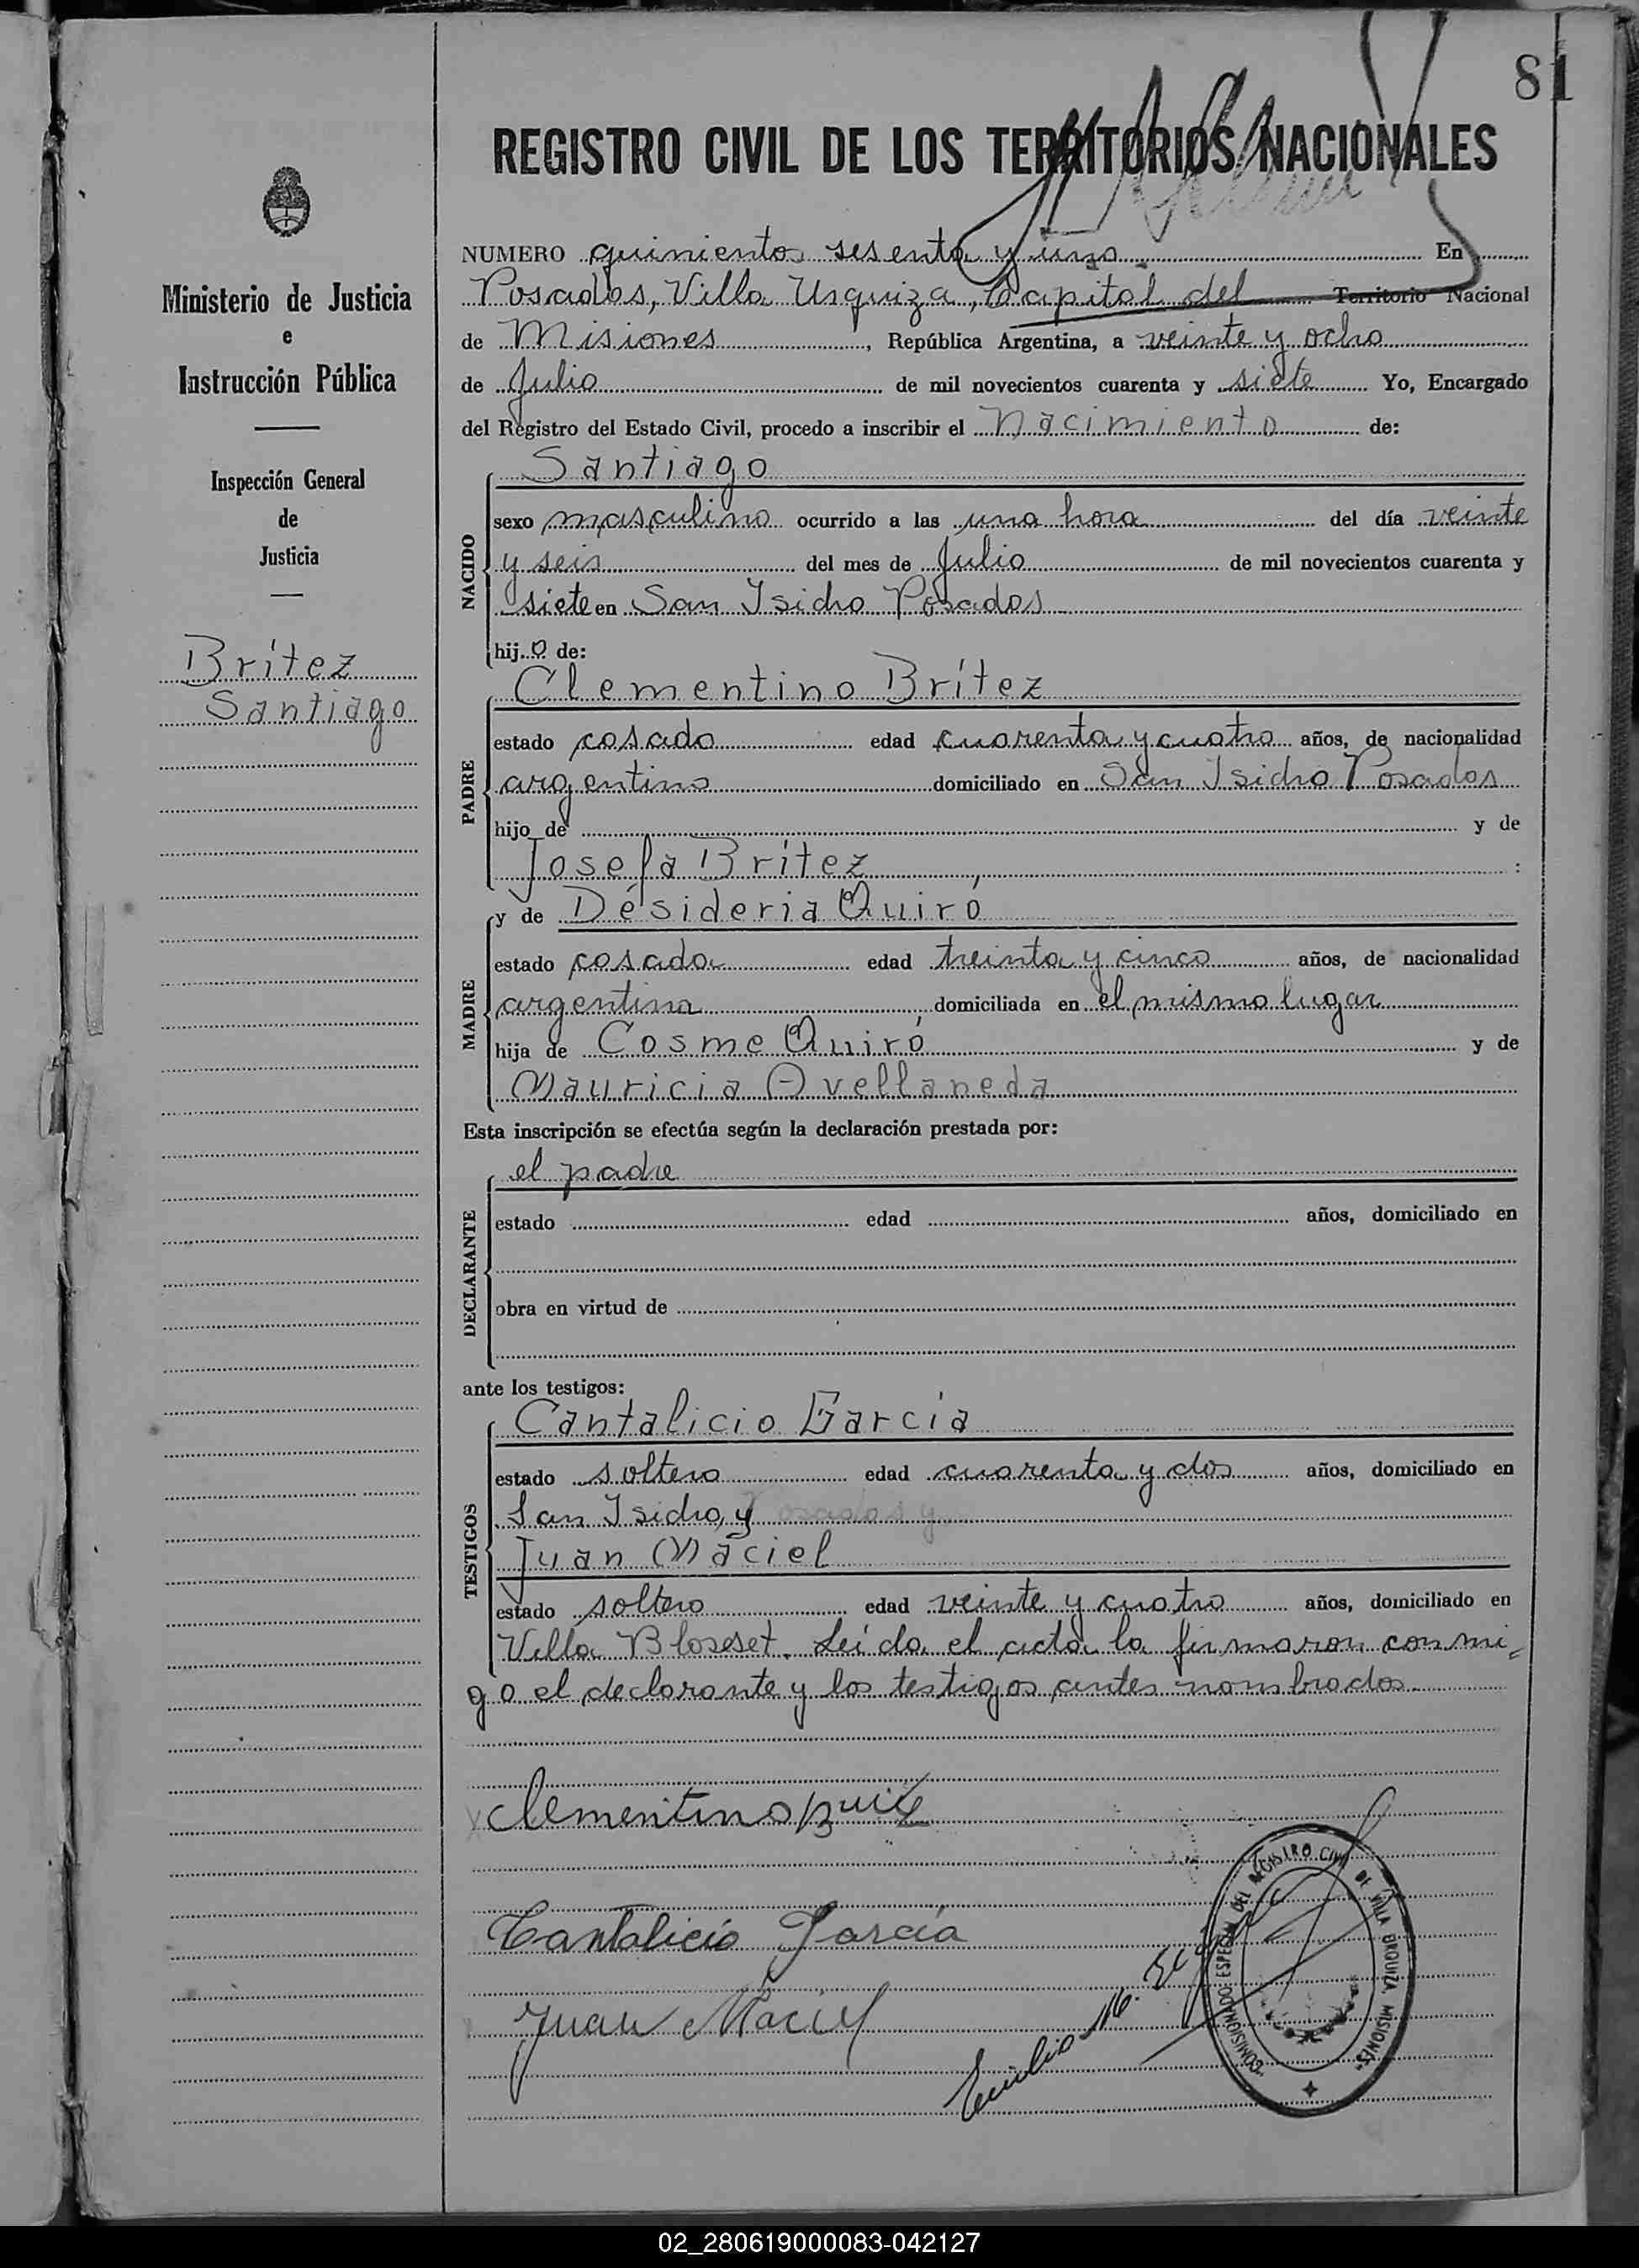 81
REGISTRO CIVIL DE LOS TERRITORIOS NACIONALES
Ministerio de Justicia
e
Instrucción Pública
Inspección General
de
Justicia
Brítez
Santiago
NUMERO quinientos sesenta y uno En
Posadas, Villa Urquiza, Capital del Territorio Nacional
de Misiones, República Argentina, a veinte y ocho
de Julio de mil novecientos cuarenta y siete Yo, Encargado
del Registro del Estado Civil, procedo a inscribir el Nacimiento de:
NACIDO
Santiago
sexo masculino ocurrido a las una hora del día veinte
y seis del mes de Julio de mil novecientos cuarenta y
siete en San Isidro Posadas
hijo de:
PADRE
Clementino Brítez
estado casado edad cuarenta y cuatro años, de nacionalidad
argentino domiciliado en San Isidro Posadas
hijo de y de
Josefa Brítez :
MADRE
y de Desideria Quiró
estado casada edad treinta y cinco años, de nacionalidad
argentina domiciliada en el mismo lugar
hija de Cosme Quiró y de
Mauricia Avellaneda
Esta inscripción se efectúa según la declaración prestada por:
DECLARANTE
el padre
estado edad años, domiciliado en
obra en virtud de
ante los testigos:
TESTIGOS
Cantalicio García
estado soltero edad cuarenta y dos años, domiciliado en
San Isidro, y
Juan Maciel
estado soltero edad veinte y cuatro años, domiciliado en
Villa Bloseset. Leída el acta la firmaron conmi=
go el declarante y los testigos antes nombrados
Clementino Britez
Cantalicio García
Juan Maciel
Emilio M.
COMISIONADO ESPECIAL DEL REGISTRO CIVIL DE VILLA URQUIZA, MISIONES
02_280619000083-042127